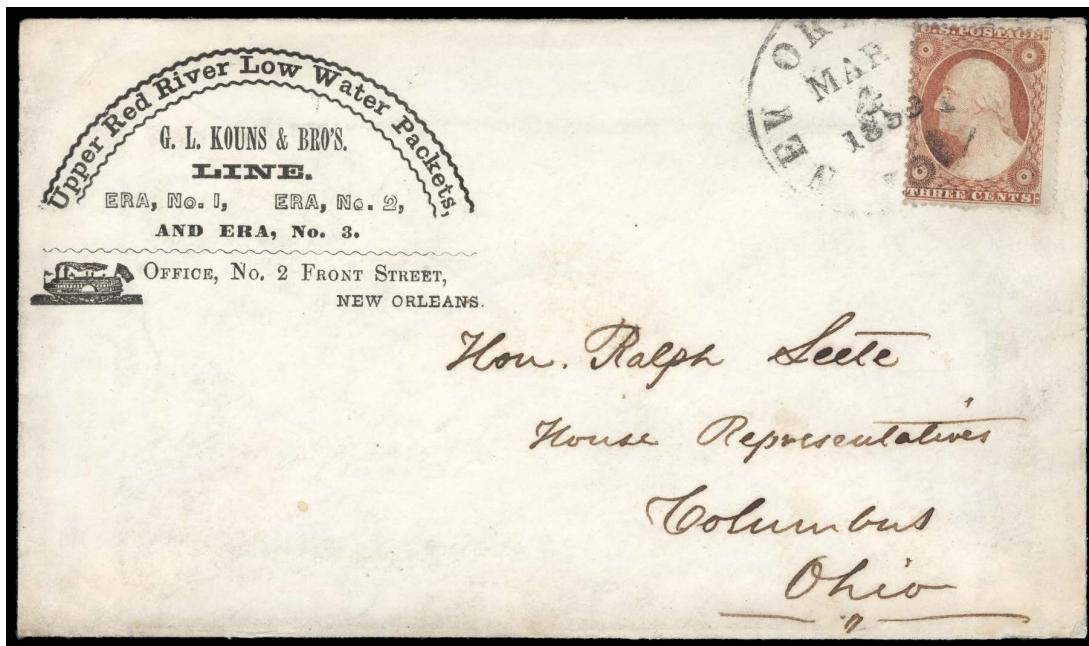 Upper Red River Low Water Packets,
G. L. KOUNS & BRO'S.
LINE.
ERA, No. 1, ERA, No. 2,
AND ERA, No. 3.
OFFICE, No. 2 FRONT STREET,
NEW ORLEANS.
NEW OR
MAR
1859
U.S. POSTAGE
THREE CENTS
Hon. Ralph Leete
House Representatives
Columbus
Ohio